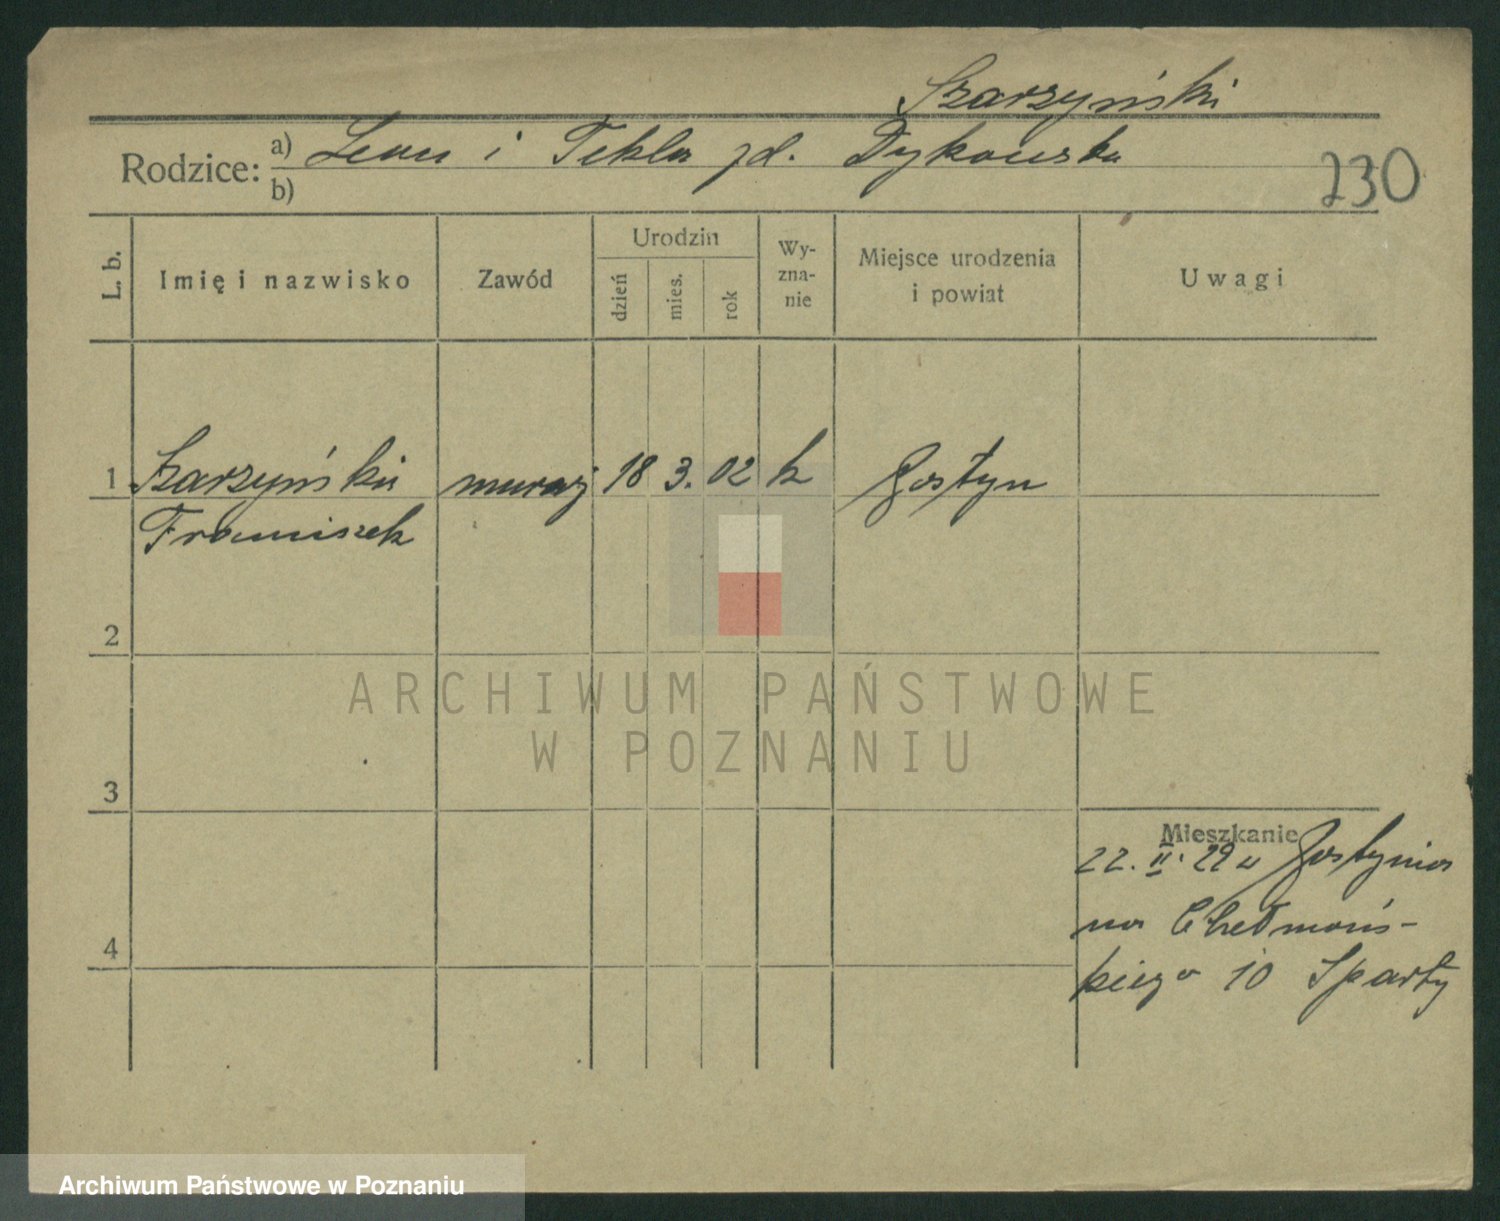 Szarzyński
Rodzice: a) Leon i Tekla zd. Dykowska
b)
230
L. b.
Imię i nazwisko
Zawód
Urodzin
dzień
mies.
rok
Wy-
zna-
nie
Miejsce urodzenia
i powiat
Uwagi
1 Szarzyński murarz 18 3. 02 k Gostyn
Franciszek
2
ARCHIWUM PAŃSTWOWE
W POZNANIU
3
Mieszkanie
22. II. 29 z Gostynia
na Chełmoń-
skiego 10 Sparty
4
Archiwum Państwowe w Poznaniu